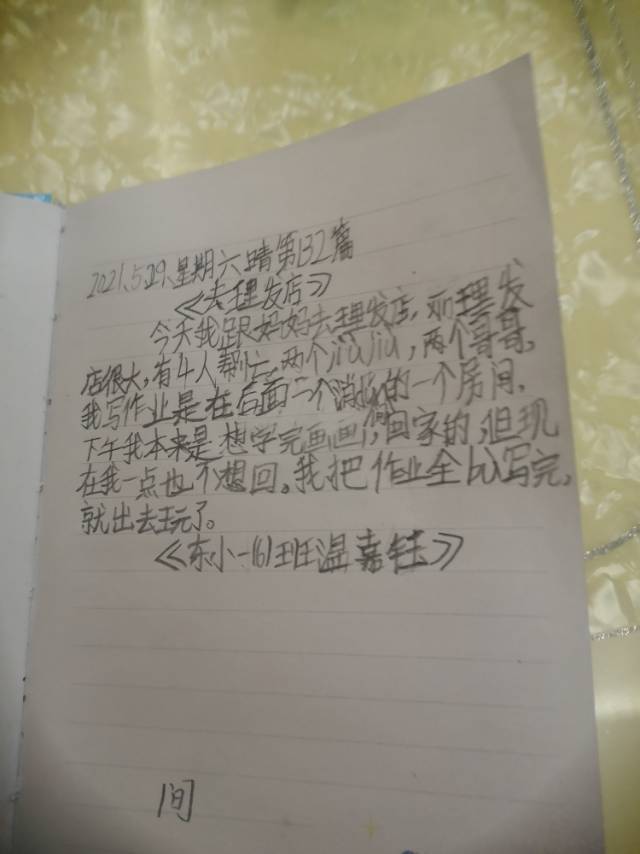 2021.5.29.星期六晴第132篇
《去理发店》
今天我跟妈妈去理发店,理发
店很大,有4人帮忙,两个jiujiu,两个哥哥,
我写作业是在后面一个消的一个房间.
下午我本来是想学完画画,回家的,但现
在我一点也不想回。我把作业全bù写完,
就出去玩了。
《东小一(6)班温嘉钰》
1间